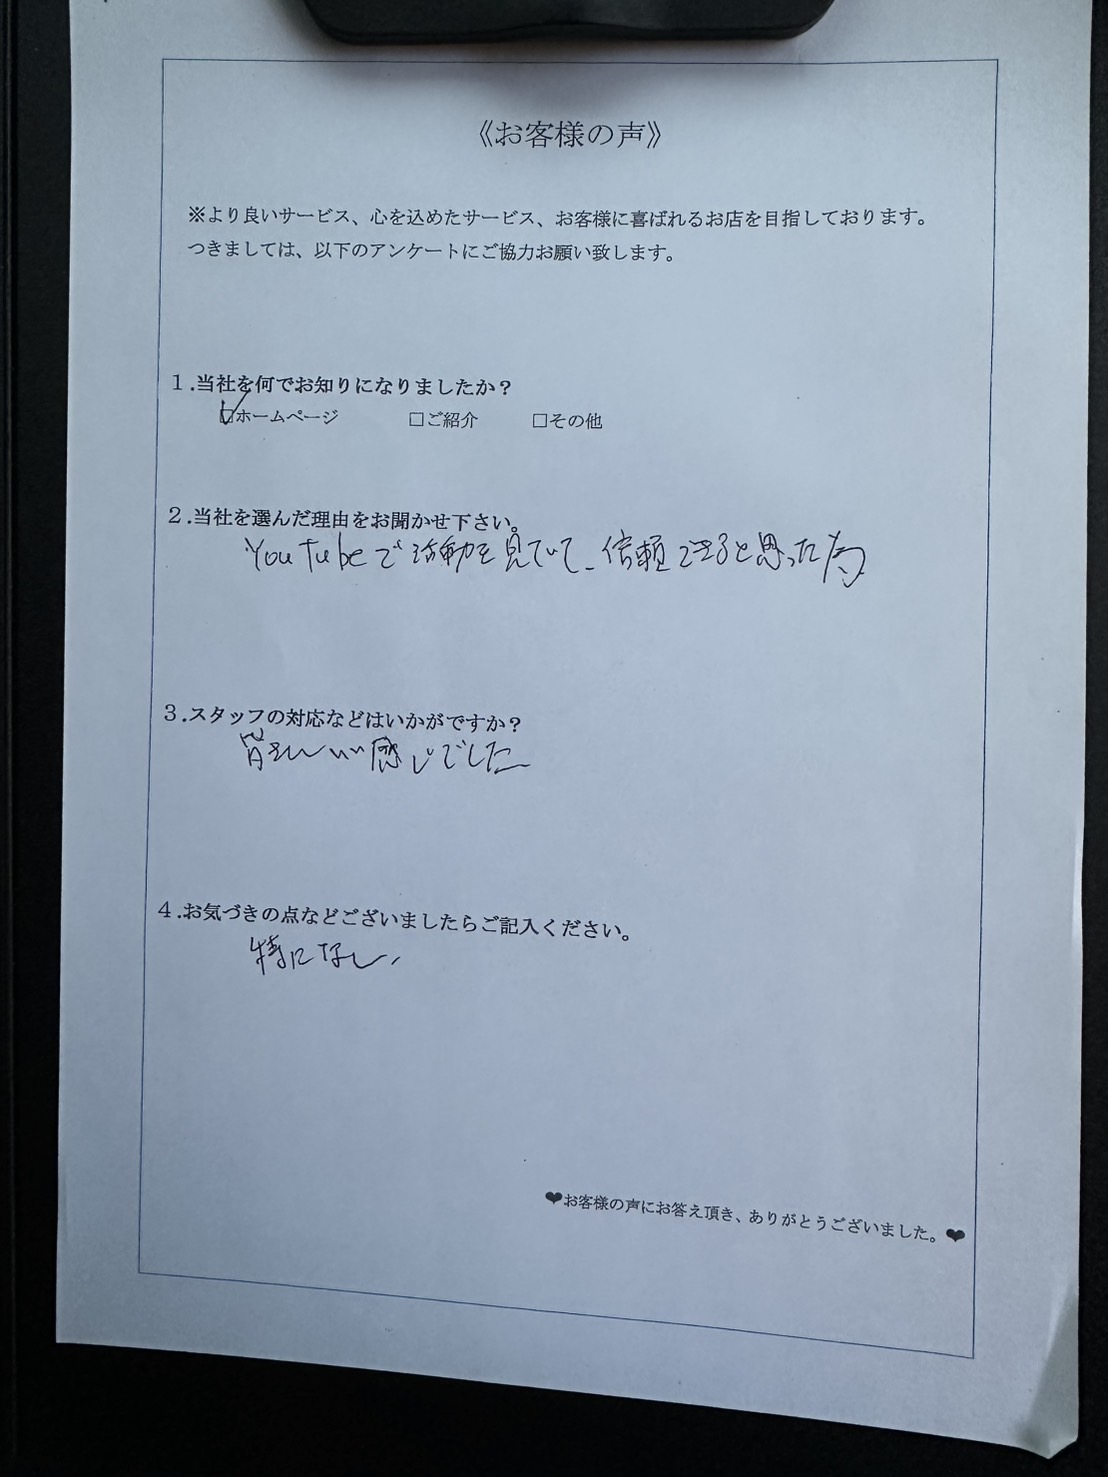 《お客様の声》
※より良いサービス、心を込めたサービス、お客様に喜ばれるお店を目指しております。
つきましては、以下のアンケートにご協力お願い致します。
１.当社を何でお知りになりましたか？
☑ホームページ　□ご紹介　□その他
２.当社を選んだ理由をお聞かせ下さい。
YouTubeで活動を見ていて、信頼できると思った為
３.スタッフの対応などはいかがですか？
皆さんいい感じでした
４.お気づきの点などございましたらご記入ください。
特になし、
❤お客様の声にお答え頂き、ありがとうございました。❤